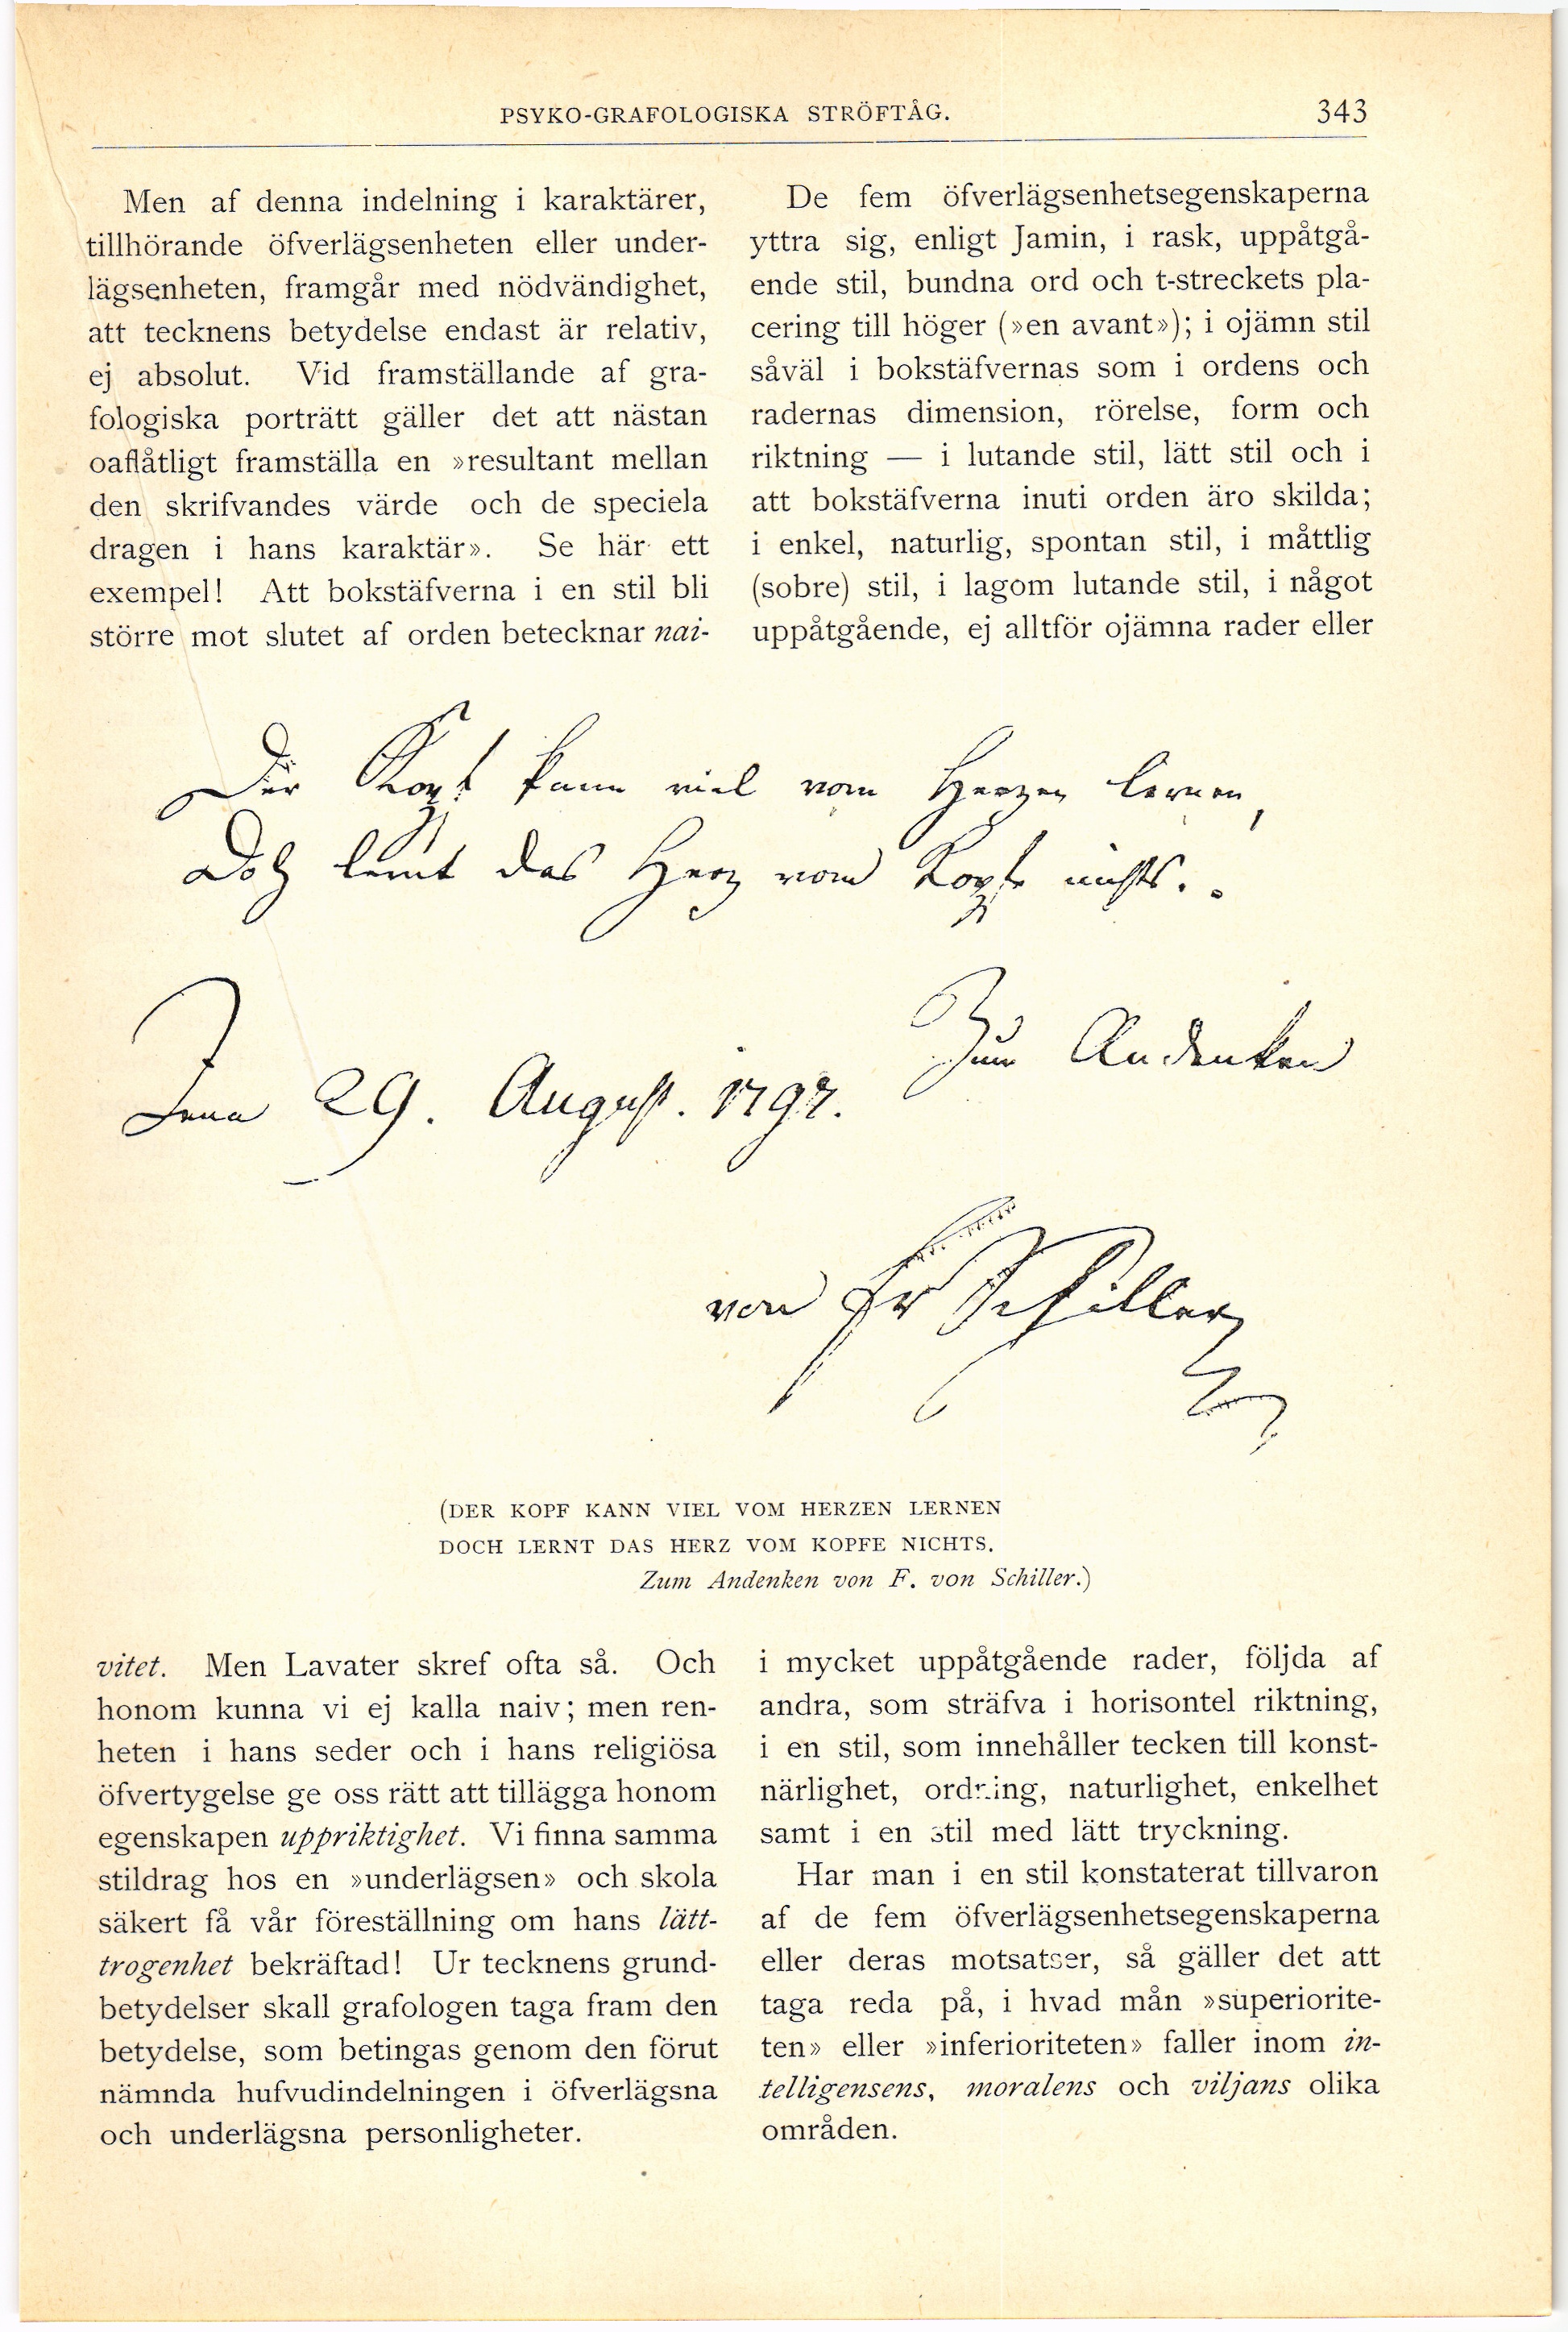 PSYKO-GRAFOLOGISKA STRÖFTÅG.
343
Men af denna indelning i karaktärer,
tillhörande öfverlägsenheten eller under-
lägsenheten, framgår med nödvändighet,
att tecknens betydelse endast är relativ,
ej absolut. Vid framställande af gra-
fologiska porträtt gäller det att nästan
oaflåtligt framställa en »resultant mellan
den skrifvandes värde och de speciela
dragen i hans karaktär». Se här ett
exempel! Att bokstäfverna i en stil bli
större mot slutet af orden betecknar nai-
De fem öfverlägsenhetsegenskaperna
yttra sig, enligt Jamin, i rask, uppåtgå-
ende stil, bundna ord och t-streckets pla-
cering till höger (»en avant»); i ojämn stil
såväl i bokstäfvernas som i ordens och
radernas dimension, rörelse, form och
riktning — i lutande stil, lätt stil och i
att bokstäfverna inuti orden äro skilda;
i enkel, naturlig, spontan stil, i måttlig
(sobre) stil, i lagom lutande stil, i något
uppåtgående, ej alltför ojämna rader eller
Der Kopf kann viel vom Herzen lernen,
Doch lernt das Herz vom Kopfe nichts.
Zum Andenken
Jena 29. August. 1797.
von Fr Schiller
(DER KOPF KANN VIEL VOM HERZEN LERNEN
DOCH LERNT DAS HERZ VOM KOPFE NICHTS.
Zum Andenken von F. von Schiller.)
vitet. Men Lavater skref ofta så. Och
honom kunna vi ej kalla naiv; men ren-
heten i hans seder och i hans religiösa
öfvertygelse ge oss rätt att tillägga honom
egenskapen uppriktighet. Vi finna samma
stildrag hos en »underlägsen» och skola
säkert få vår föreställning om hans lätt-
trogenhet bekräftad! Ur tecknens grund-
betydelser skall grafologen taga fram den
betydelse, som betingas genom den förut
nämnda hufvudindelningen i öfverlägsna
och underlägsna personligheter.
i mycket uppåtgående rader, följda af
andra, som sträfva i horisontel riktning,
i en stil, som innehåller tecken till konst-
närlighet, ordning, naturlighet, enkelhet
samt i en stil med lätt tryckning.
Har man i en stil konstaterat tillvaron
af de fem öfverlägsenhetsegenskaperna
eller deras motsatser, så gäller det att
taga reda på, i hvad mån »superiorite-
ten» eller »inferioriteten» faller inom in-
telligensens, moralens och viljans olika
områden.